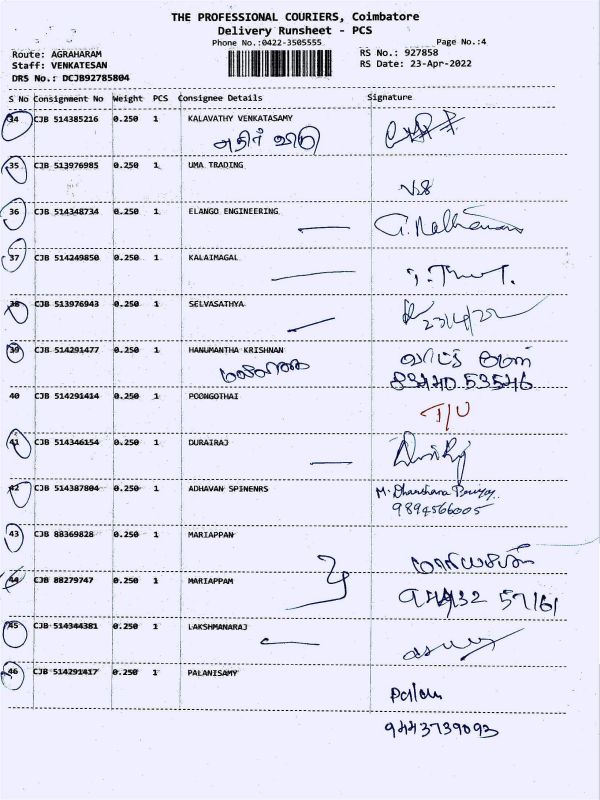 THE PROFESSIONAL COURIERS, Coimbatore
Delivery Runsheet - PCS
Phone No.:0422-3505555
Page No.:4
Route: AGRAHARAM
RS No.: 927858
Staff: VENKATESAN
RS Date: 23-Apr-2022
DRS No.: DCJB92785804
S No Consignment No Weight PCS Consignee Details Signature
34 CJB 514385216 0.250 1 KALAVATHY VENKATASAMY
35 CJB 513976985 0.250 1 UMA TRADING
36 CJB 514348734 0.250 1 ELANGO ENGINEERING
37 CJB 514249850 0.250 1 KALAIMAGAL
38 CJB 513976943 0.250 1 SELVASATHYA
23/4/22
39 CJB 514291477 0.250 1 HANUMANTHA KRISHNAN
83440 53546
40 CJB 514291414 0.250 1 POONGOTHAI
T/U
41 CJB 514346154 0.250 1 DURAIRAJ
42 CJB 514387804 0.250 1 ADHAVAN SPINENRS
9894566005
43 CJB 88369828 0.250 1 MARIAPPAN
44 CJB 88279747 0.250 1 MARIAPPAM
45 CJB 514344381 0.250 1 LAKSHMANARAJ
46 CJB 514291417 0.250 1 PALANISAMY
9443739093